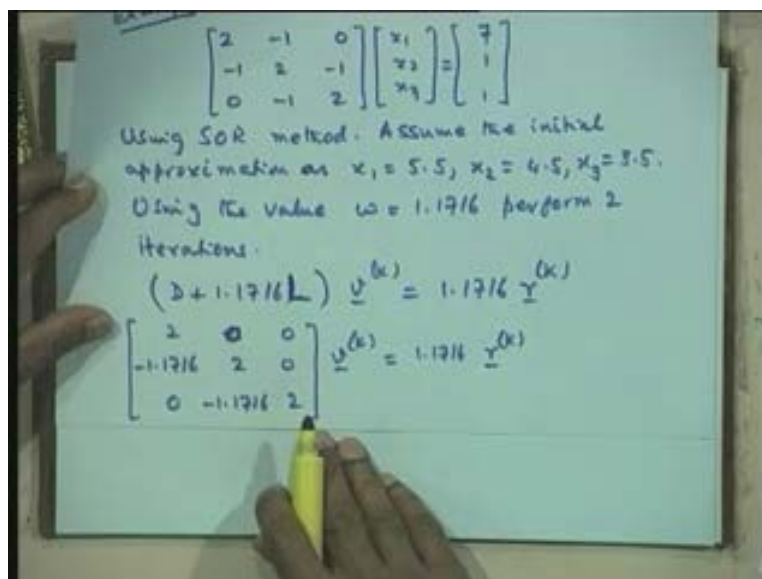 [2 -1 0] [x₁] = [7]
[-1 2 -1] [x₂] [1]
[0 -1 2] [x₃] [1]
Using SOR method. Assume the initial
approximation as x₁ = 5.5, x₂ = 4.5, x₃ = 3.5.
Using the value ω = 1.1716 perform 2
iterations.
(D + 1.1716 L) v^(k) = 1.1716 r^(k)
[2 0 0]
[-1.1716 2 0] v^(k) = 1.1716 r^(k)
[0 -1.1716 2]